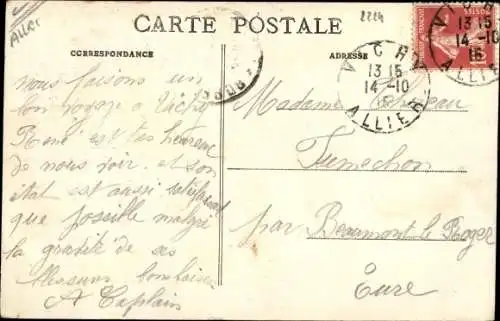 Allier
2214
CARTE POSTALE
CORRESPONDANCE
ADRESSE
VICHY
13 15
14-10
15
ALLIER
VICHY
13 15
14-10
15
ALLIER
nous faisons un
bon voyage a Vichy
René est très heureux
de nous voir et son
état est aussi satisfaisant
que possible malgré
la gravité de ses
blessures
A Caplain
Madame
Fumechon
par Beaumont le Roger
Eure